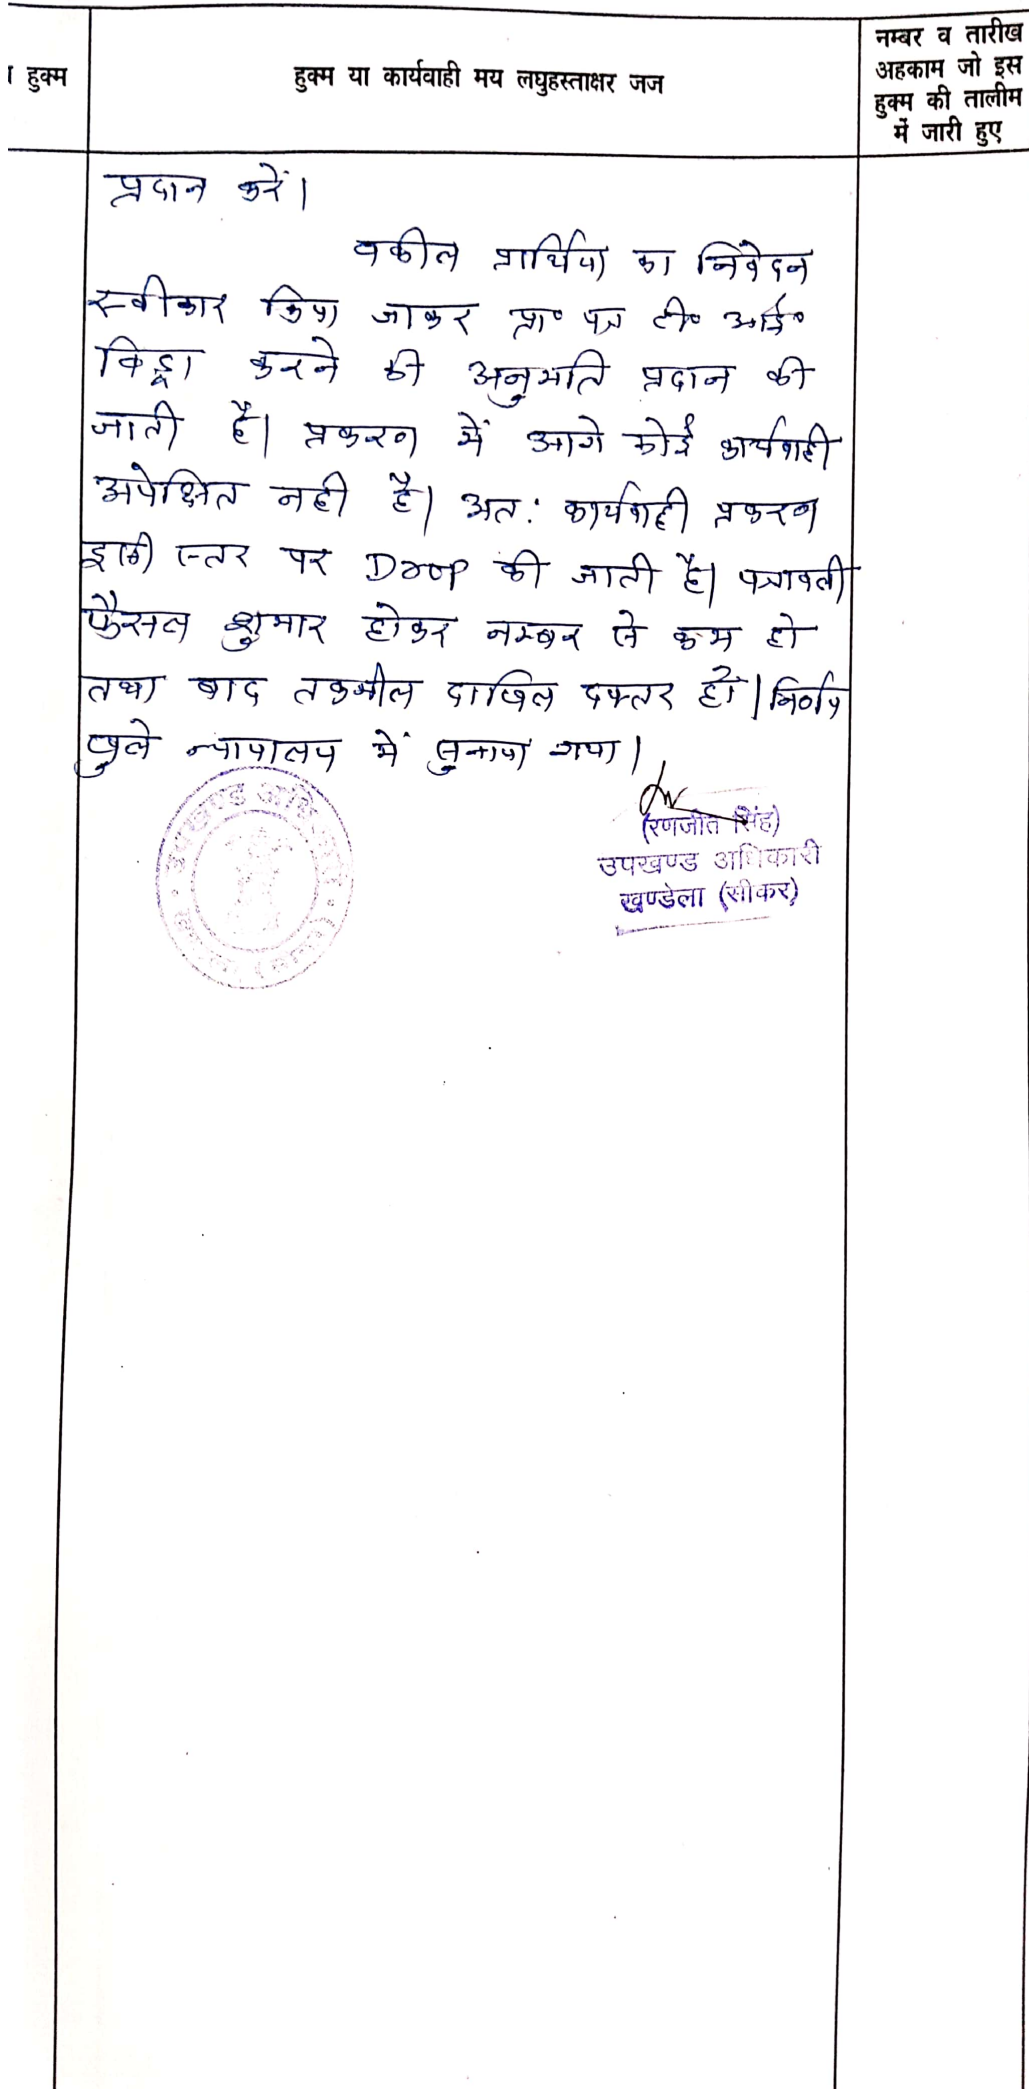 हुक्म
हुक्म या कार्यवाही मय लघुहस्ताक्षर जज
नम्बर व तारीख
अहकाम जो इस
हुक्म की तालीम
में जारी हुए
प्रदान करें।
वकील प्रार्थिया का निवेदन
स्वीकार किया जाकर प्रा० पत्र टी० आई०
विड्रा करने की अनुमति प्रदान की
जाती है। प्रकरण में आगे कोई कार्यवाही
अपेक्षित नही है। अत: कार्यवाही प्रकरण
इसी स्तर पर Drop की जाती है। पत्रावली
फैसल शुमार होकर नम्बर से कम हो
तथा बाद तकमील दाखिल दफ्तर हो। निर्णय
खुले न्यायालय में सुनाया गया।
(रणजीत सिंह)
उपखण्ड अधिकारी
खण्डेला (सीकर)
उपखण्ड